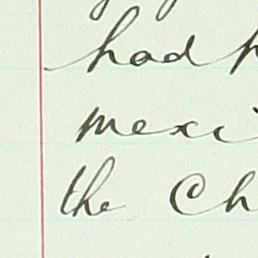 had
mexi
the Ch